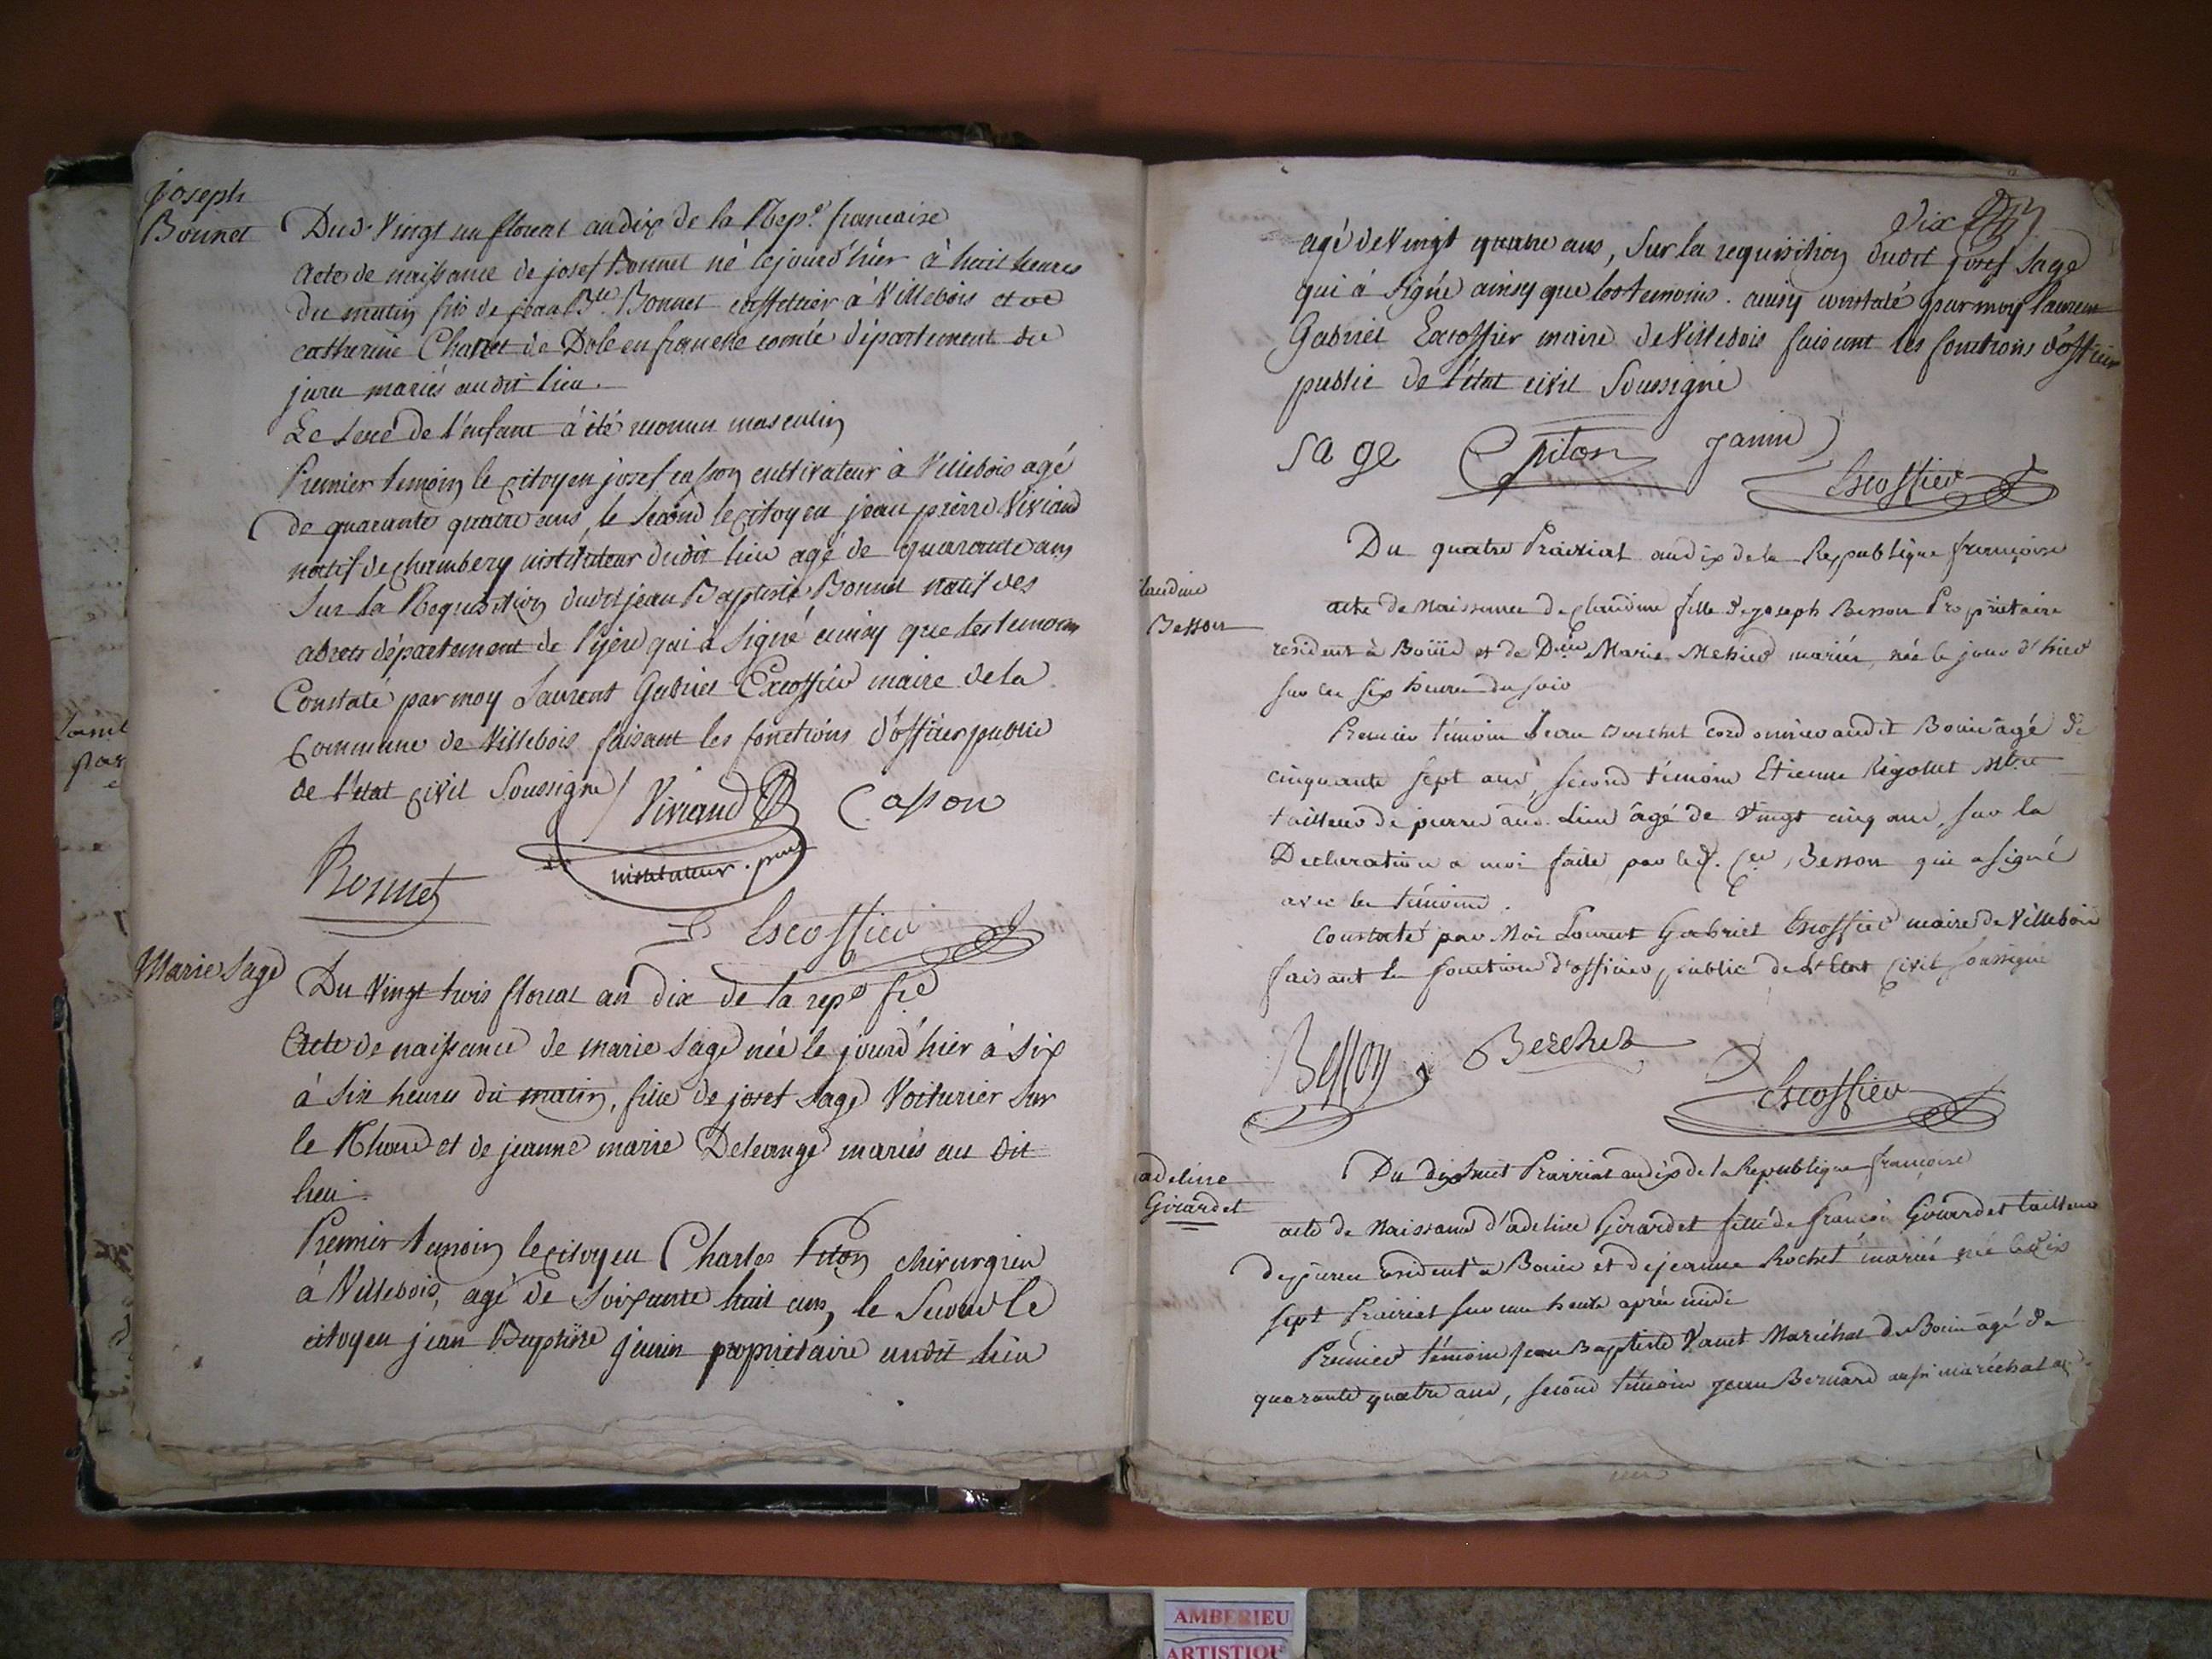 joseph
Bonnet
Dud. Vingt un floreal an dix de la Rep.e francaise
Acte de naissance de josef Bonnet né lejourd'hier à huit heures
du matin fils de jean B.te Bonnet caffetier à Villebois et de
catherine Chanet de Dole en franche comté département du
jura mariés au dit lieu.
Le sexe de l'enfant à été reconnu masculin
Premier temoin le citoyen josef casson cultivateur à Villebois agé
de quarante quatre ans, le second le citoyen jean pierre Viviand
natif de chambery instituteur dudit lieu agé de quarante ans
Sur la Requisition dudit jean Baptiste Bonnet natif des
abrets département de l'isere qui à signé ainsy que les temoins
Constaté par moy Laurent Gabriel Excoffier maire de la
Commune de Villebois faisant les fonctions d'officier public
de l'état civil Soussigné
Viviand
Casson
instituteur
Bonnet
Escoffier
Marie Sage
Du Vingt trois floreal an dix de la rep.e fr.e
Acte de naissance de marie Sage née le jourd'hier à six
à six heures du matin, fille de josef Sage Voiturier sur
le Rhone et de jeanne marie Delorange mariés au dit
lieu.
Premier temoin le citoyen Charles Piton chirurgien
à Villebois, agé de Soixante huit ans, le Second le
citoyen jean Baptiste janin propriétaire audit lieu
dix
agé de Vingt quatre ans, Sur la requisition dudit josef Sage
qui à Signé ainsy que les temoins. ainsy constaté par moy laurent
Gabriel Excoffier maire de Villebois faisant les fonctions d'officier
public de l'état civil Soussigné
Sage
Piton
janin
Escoffier
Du quatre Prairial an dix de la Republique françoise
Claudine
Besson
acte de Naissance de claudine fille de joseph Besson Propriétaire
resident à Bouis et de D.me Marie Mehier mariés, née le jour d'hier
sur les six heures du soir
Premier témoin Jean Berchet cordonnier audit Bouis âgé de
cinquante sept ans, second témoin Etienne Rigollet M.tre
tailleur de pierre aud. Lieu âgé de Vingt cinq ans, sur la
Declaration a moi faite par led. C.en Besson qui a signé
avec les témoins.
Constaté par Moi Laurent Gabriel Escoffier maire de Villebois
faisant les fonctions d'officier public de l'Etat Civil soussigné
Besson
Berchet
Escoffier
adeline
Girardet
Du dix huit Prairial an dix de la Republique françoise
acte de Naissance d'adeline Girardet fille de françois Girardet tailleur
de pierres résident a Bouis et de jeanne Rochet mariés, née le dix
sept Prairial sur une heure après midi
Premier témoin Jean Baptiste Vanet Maréchal de Bouis âgé de
quarante quatre ans, second témoin Jean Bernard aussi maréchal
AMBERIEU
ARTISTIQUE